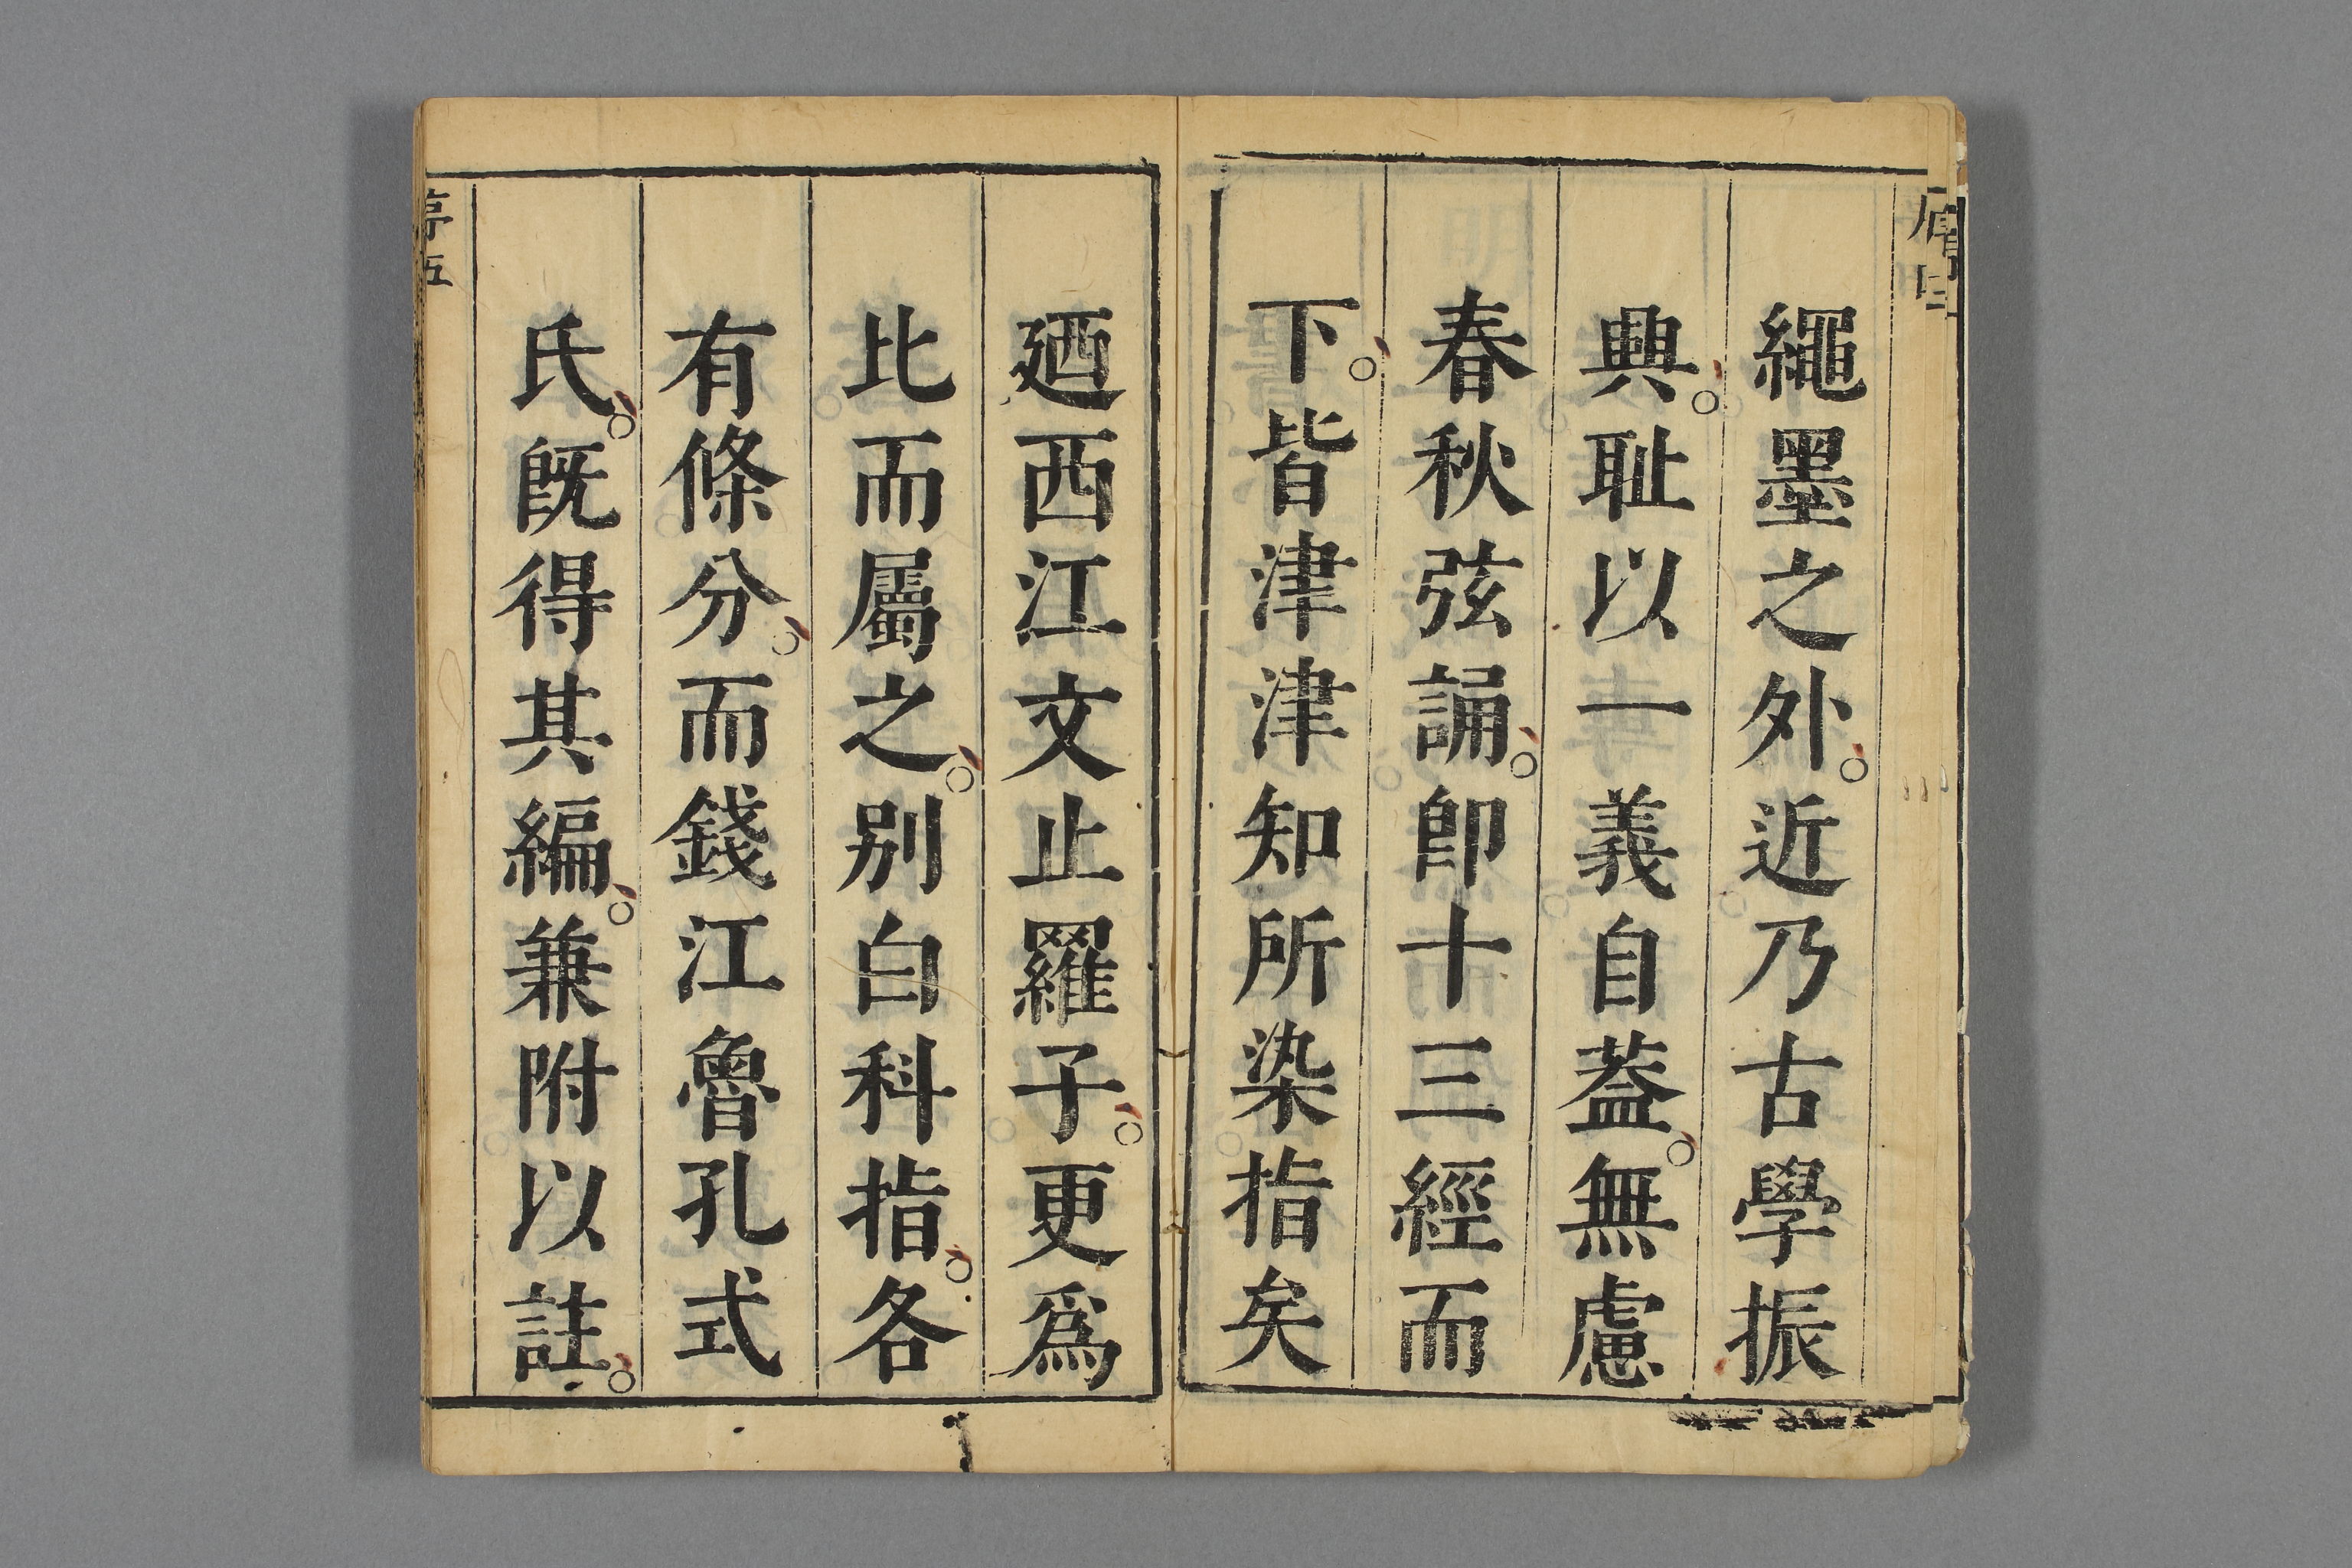 繩墨之外。近乃古學振
興。耻以一義自蓋。無慮
春秋弦誦。即十三經而
下。皆津津知所染指矣
廼西江文止羅子。更爲
比而屬之。别白科指。各
有條分。而錢江魯孔式
氏。既得其編。兼附以註。
序五